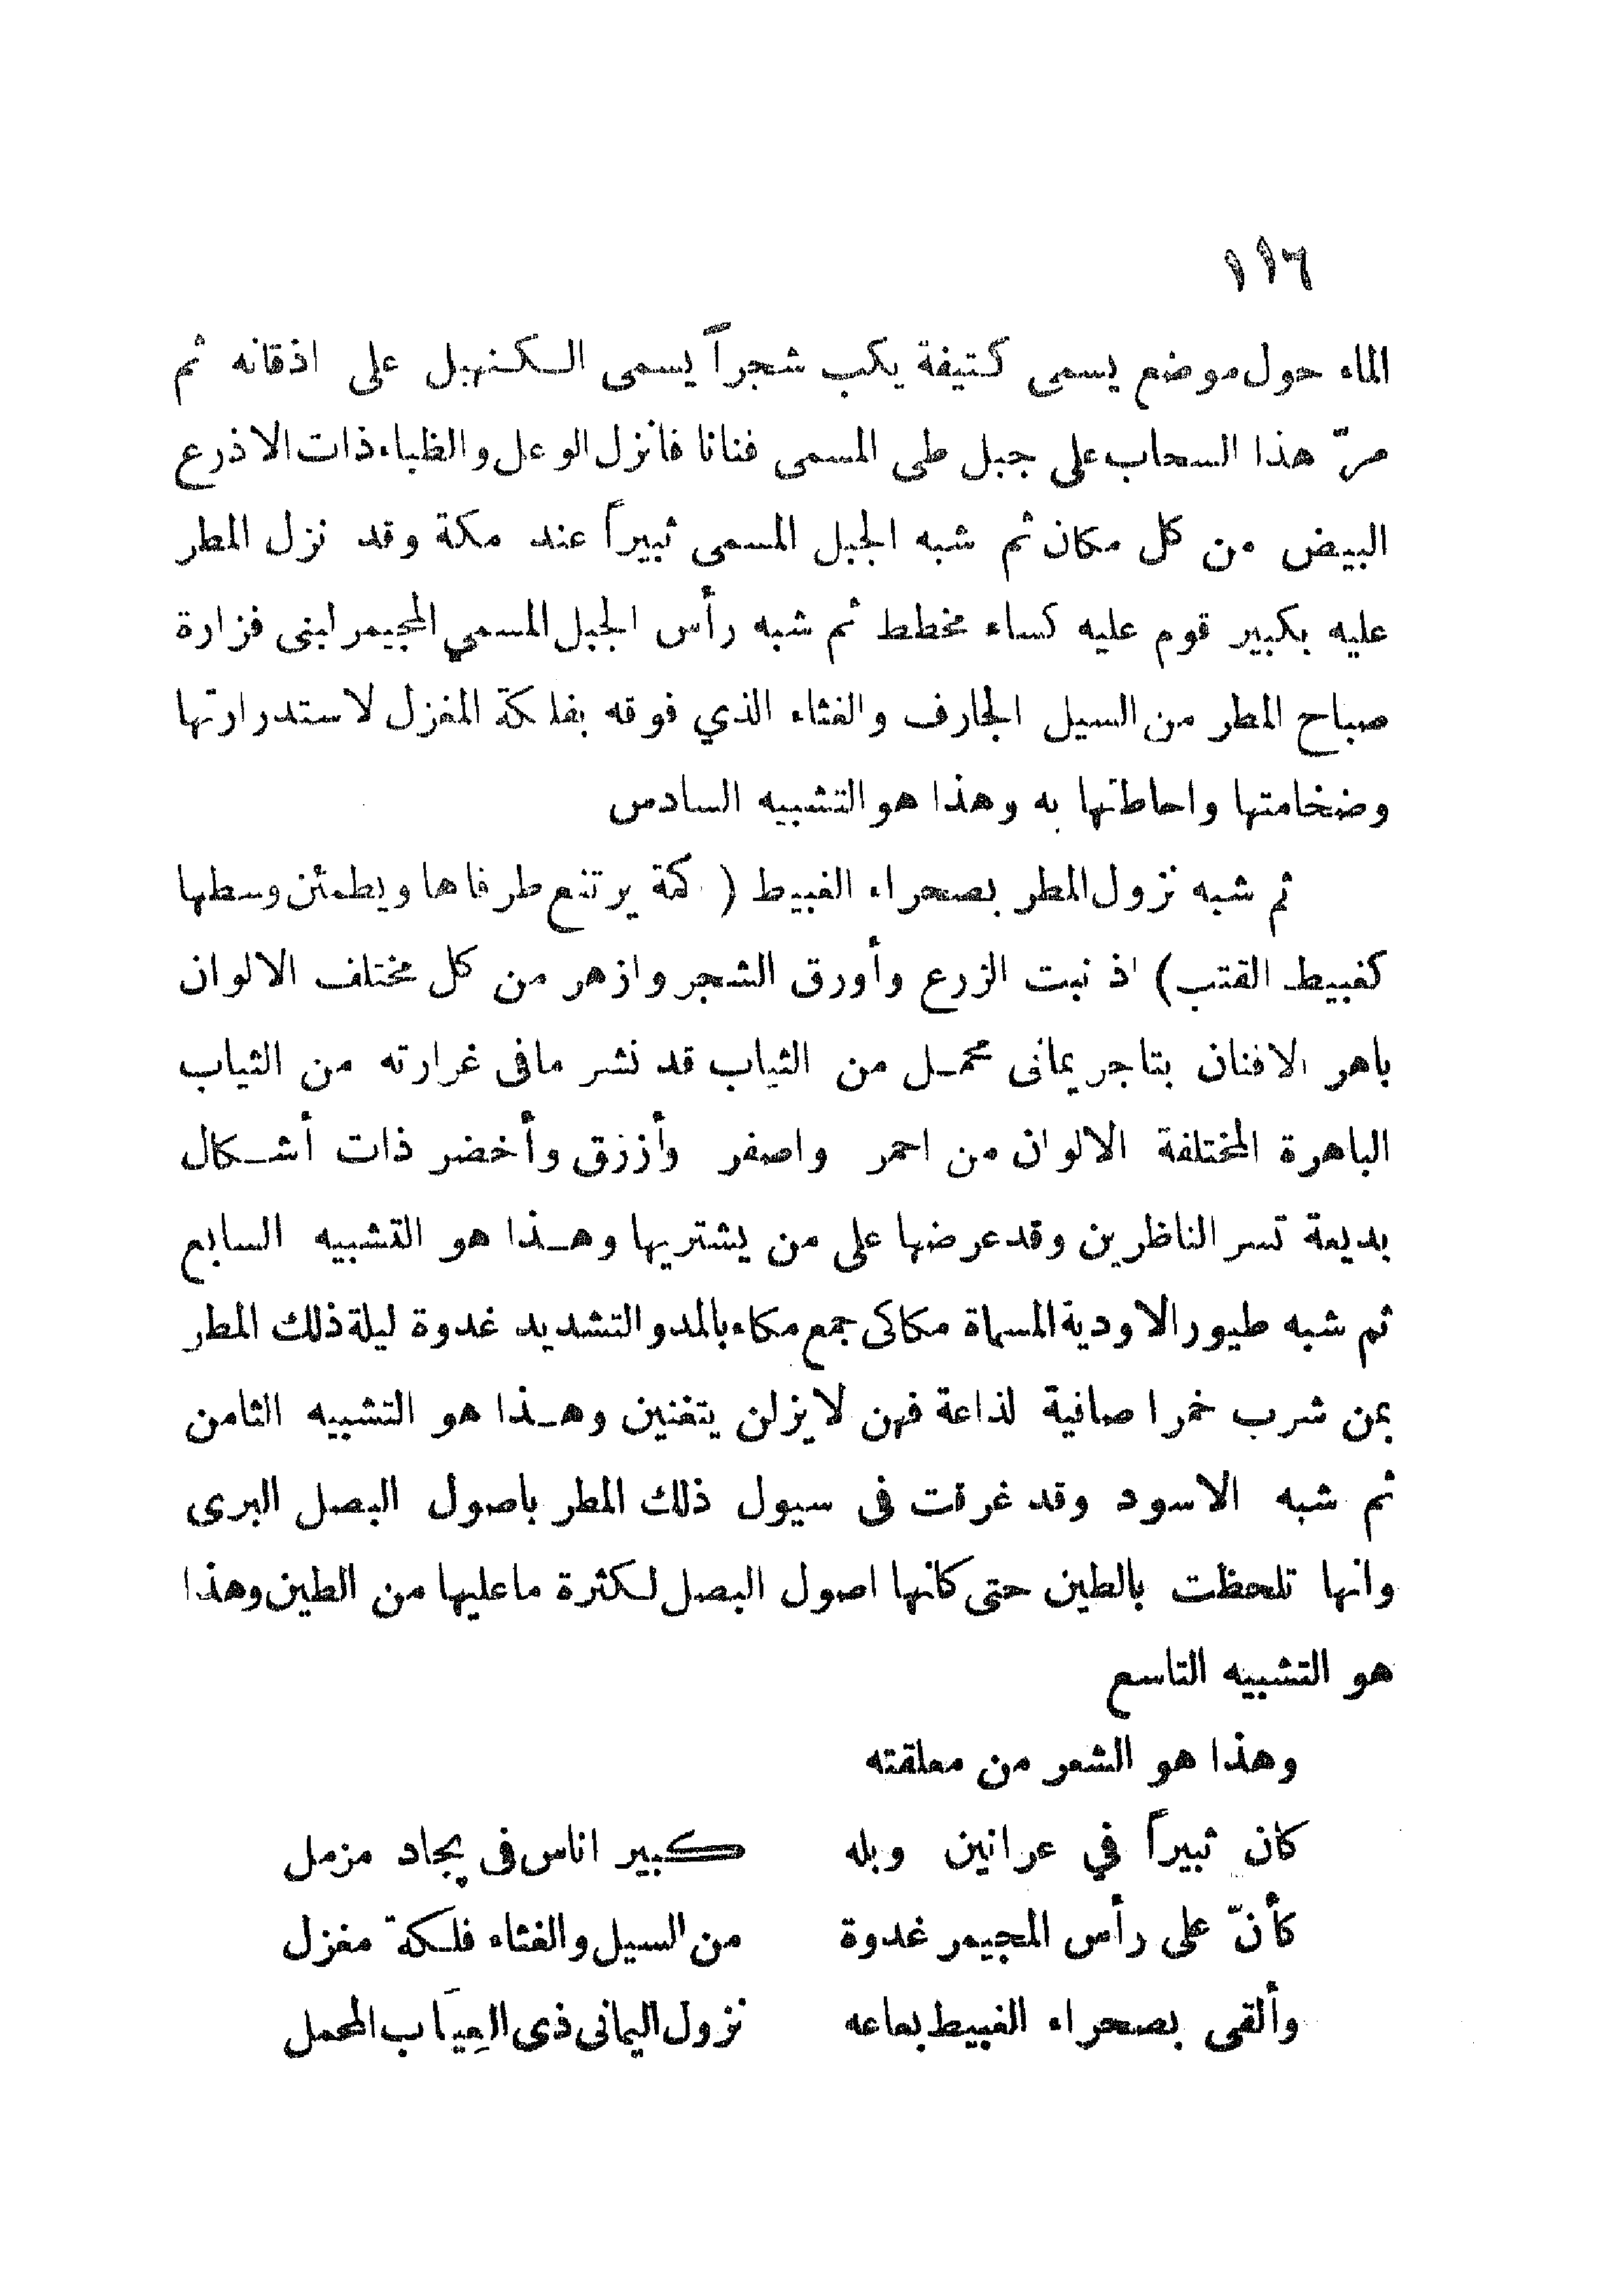 ١١٦
الماء حول موضع يسمى كتيفة يكب شجراً يسمى الكنهبل على اذقانه ثم
مرّ هذا السحاب على جبل طى المسمى قنانا فانزل الوعل والظباء ذات الاذرع
البيض من كل مكان ثم شبه الجبل المسمى ثبيراً عند مكة وقد نزل المطر
عليه بكبير قوم عليه كساء مخطط ثم شبه رأس الجبل المسمي المجيمر لبنى فزارة
صباح المطر من السيل الجارف والغثاء الذي فوقه بفلكة المغزل لاستدرارتها
وضخامتها واحاطتها به وهذا هو التشبيه السادس
ثم شبه نزول المطر بصحراء الغبيط ( كمة يرتفع طرفاها ويطمئن وسطها
كغبيط القتب) اذ نبت الزرع وأورق الشجر وازهر من كل مختلف الالوان
باهر الافنان بتاجر يمانى محمل من الثياب قد نشر مافى غرارته من الثياب
الباهرة المختلفة الالوان من احمر واصفر وأزرق وأخضر ذات أشكال
بديعة تسر الناظرين وقد عرضها على من يشتريها وهذا هو التشبيه السابع
ثم شبه طيور الاودية المسماة مكاكى جمع مكاء بالمد والتشديد غدوة ليلة ذلك المطر
بمن شرب خمرا صافية لذاعة فهن لا يزلن يتغنين وهذا هو التشبيه الثامن
ثم شبه الاسود وقد غرقت فى سيول ذلك المطر باصول البصل البرى
وانها تلحظت بالطين حتى كانها اصول البصل لكثرة ما عليها من الطين وهذا
هو التشبيه التاسع
وهذا هو الشعر من معلقته
كان ثبيراً في عرانين وبله كبير اناس فى بجاد مزمل
كأنّ على رأس المجيمر غدوة من السيل والغثاء فلكة مغزل
وألقى بصحراء الغبيط بعاعه نزول اليمانى ذى العِيَاب المحمل